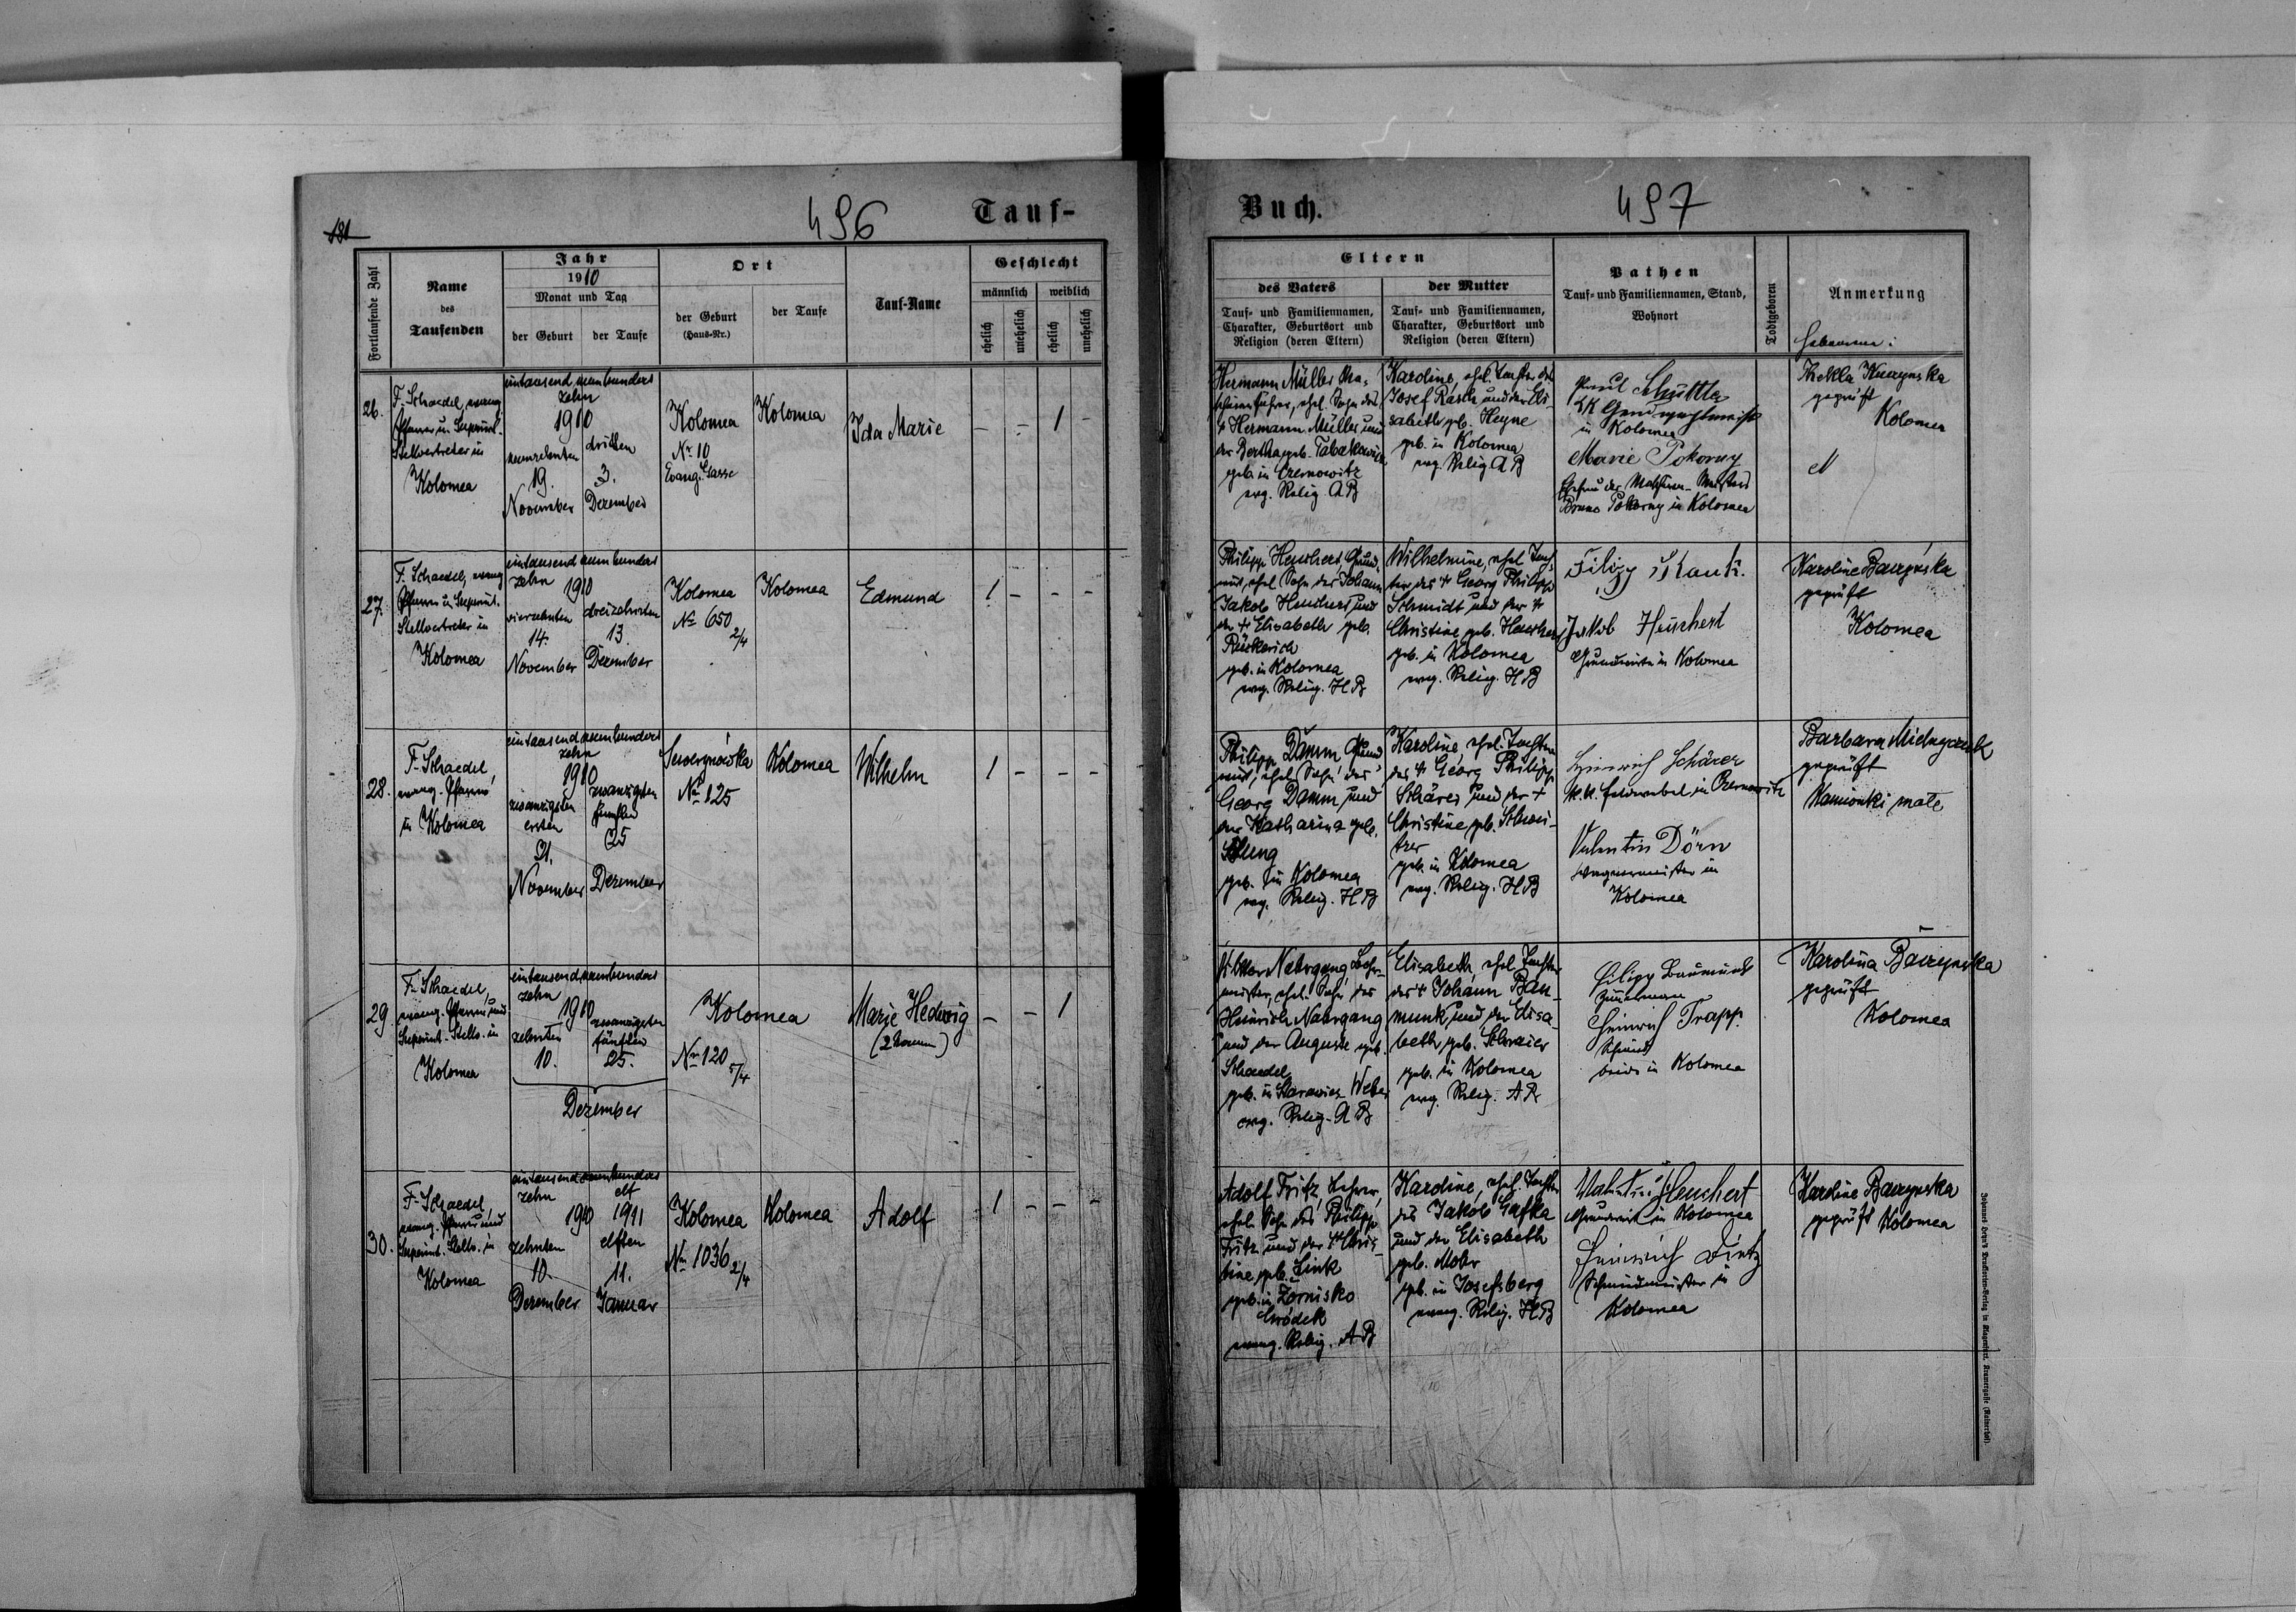 181
496
Tauf-
Fortlaufende Zahl
Name
des
Taufenden
Jahr
1910
Monat und Tag
der Geburt
der Taufe
Ort
der Geburt
(Haus-Nr.)
der Taufe
Tauf-Name
Geschlecht
männlich
weiblich
ehelich
unehelich
ehelich
unehelich
26.
F. Schaedel, evang.
Pfarrer u. Superint.
Stellvertreter in
Kolomea
eintausend neunhundert
zehn
1910
neunzehnten
19.
November
dritten
3.
Dezember
Kolomea
Nr. 10
Evang. Gasse
Kolomea
Ida Marie
- - 1 -
27.
F. Schaedel, evang
Pfarrer u. Superint.
Stellvertreter in
Kolomea
eintausend neunhundert
zehn 1910
vierzehnten
14.
November
dreizehnten
13.
Dezember
Kolomea
No 650
2/4
Kolomea
Edmund
1 - - -
28.
F. Schaedel,
evang. Pfarrer
in Kolomea
eintausend neunhundert
zehn
1910
zwanzigsten
ersten
21.
November
zwanzigsten
fünften
25
Dezember
Sewerynówka
No 125
Kolomea
Wilhelm
1 - - -
29.
F. Schaedel,
evang. Pfarrer und
Superint. Stellv. in
Kolomea
eintausend neunhundert
zehn
1910
zehnten
10.
zwanzigsten
fünften
25.
Dezember
Kolomea
No 120
5/4
Marie Hedwig
- - 1
30.
F. Schaedel,
evang. Pfarrer und
Superint. Stellv. in
Kolomea
eintausend neunhundert
zehn elf
1910 1911
zehnten
10.
Dezember
elften
11.
Januar
Kolomea
No 1036 2/4
Kolomea
Adolf
1 - - -
Buch.
497
Eltern
des Vaters
Tauf- und Familiennamen,
Charakter, Geburtsort und
Religion (deren Eltern)
der Mutter
Tauf- und Familiennamen,
Charakter, Geburtsort und
Religion (deren Eltern)
Pathen
Tauf- und Familiennamen, Stand,
Wohnort
Todtgeboren
Anmerkung
Hebamme:
Hermann Müller Ma-
schinenführer, ehel. Sohn des
† Hermann Müller und
der Bertha geb.
geb. in Czernowitz
evg. Relig. AB
Karoline, ehel. Tochter des
Josef Rasch und der Eli-
sabeth geb. Heyne
geb. in Kolomea
evg. Relig AB
Paul
in Kolomea
Marie Pokorny
Ehefrau des
Bruno Pokorny in Kolomea
Thekla
geprüft
Kolomea
Philipp Heuchert, Grund-
wirt, ehel. Sohn des Johann
Jakob Heuchert und
der † Elisabeth geb.
geb. in Kolomea
evg. Relig. HB
Wilhelmine, ehel. Toch-
ter des † Georg Philipp
Schmidt und der †
Christine geb. Heuchert
geb. in Kolomea
evg. Relig. HB
Filipp
Jakob Heuchert
Grundwirte in Kolomea
Karoline
geprüft
Kolomea
Philipp Damm, Grund-
wirt, ehel. Sohn des
Georg Damm und
der Katharina geb.
geb. in Kolomea
evg. Relig. HB
Karoline, ehel. Tochter
des † Georg Philipp
Schärer und der †
Christine, geb. Schwei-
tzer
geb. in Kolomea
evg. Relig. HB
Heinrich Schärer
k.k. Feldwebel in Czernowitz
Valentin Dörn
Wagnermeister in
Kolomea
Barbara
geprüft
Kamionki małe
Nahrgang
ehel. Sohn des
Heinrich Nahrgang
und der Auguste geb.
Schaedel
geb. in
evg. Relig. AB
Elisabeth, ehel. Tochter
des † Johann Bau-
munk und der Elisa-
beth, geb.
geb. in Kolomea
evg. Relig. AB
Filipp Baumunk
Zimmermann
Heinrich Trapp
Schmied
beide in Kolomea
Karolina
geprüft
Kolomea
Adolf Fritz, Lehrer,
ehel. Sohn des Philipp
Fritz und der Chris-
tine geb. Link
geb. in
Gródek
evang. Relig. AB
Karoline, ehel. Tochter
des Jakob Gafka
und der Elisabeth
geb. Mohr
geb. in Josefsberg
evang. Relig. HB
Valentin Heuchert
Grundwirt in Kolomea
Heinrich
Schmiedmeister in
Kolomea
Karoline
geprüft Kolomea